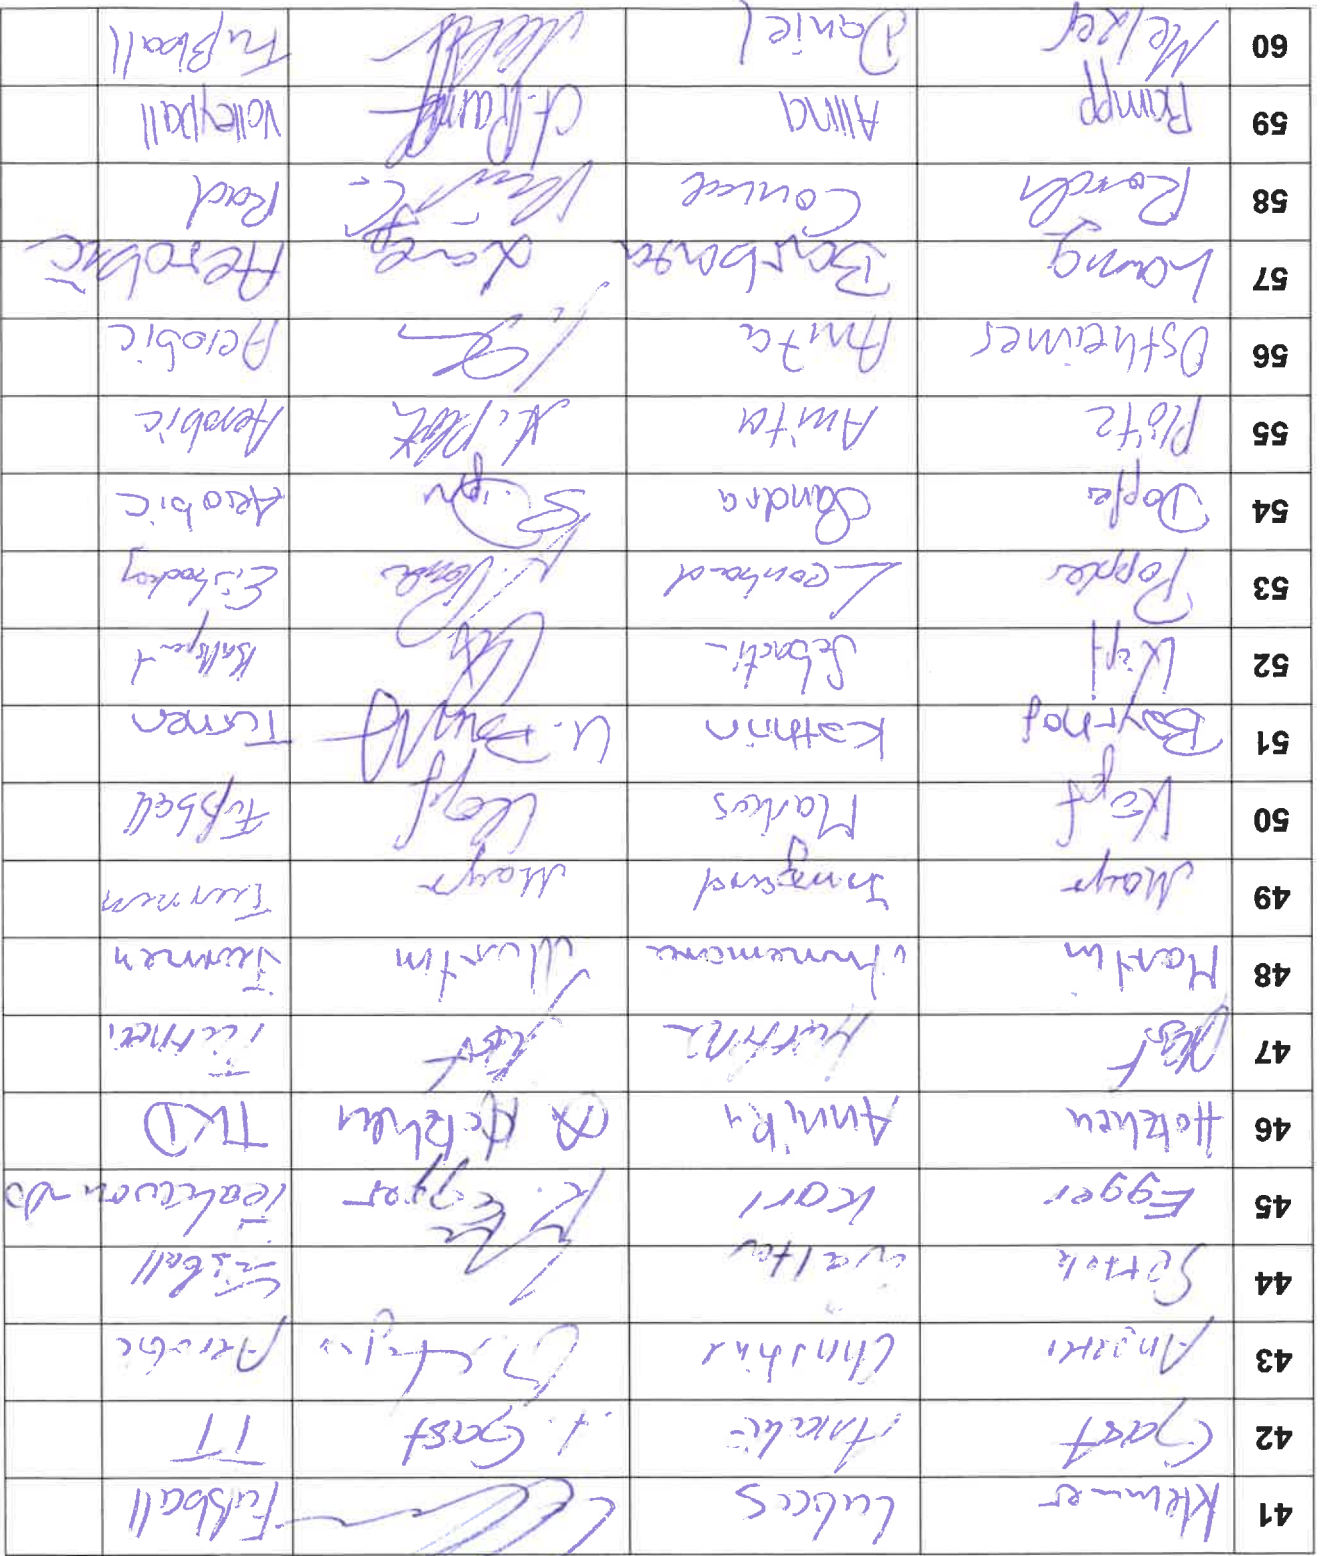 41 Klemmer Lukas Fußball
42 Gast Amelie A. Gast TT
43 Angerer Christine Aerobic
44 Walter Eisball
45 Egger Karl K. Egger Teakwon-Do
46 Annika TKD
47 Jutta Turnen
48 Martin Annemarie Martin Turnen
49 Mayr Irmgard Mayr Turnen
50 Köpf Markus Köpf Fußball
51 Bayrhof Kathrin Turnen
52 Köpf Sebasti- Ballsport
53 Popple Leonhard Eishockey
54 Dopfer Sandra Aerobic
55 Plötz Anita A. Plötz Aerobic
56 Ostheimer Anita Aerobic
57 Lang Barbara Lang Aerobic
58 Rad
59 Rampp Alina A. Rampp Volleyball
60 Melzer Daniel Fußball